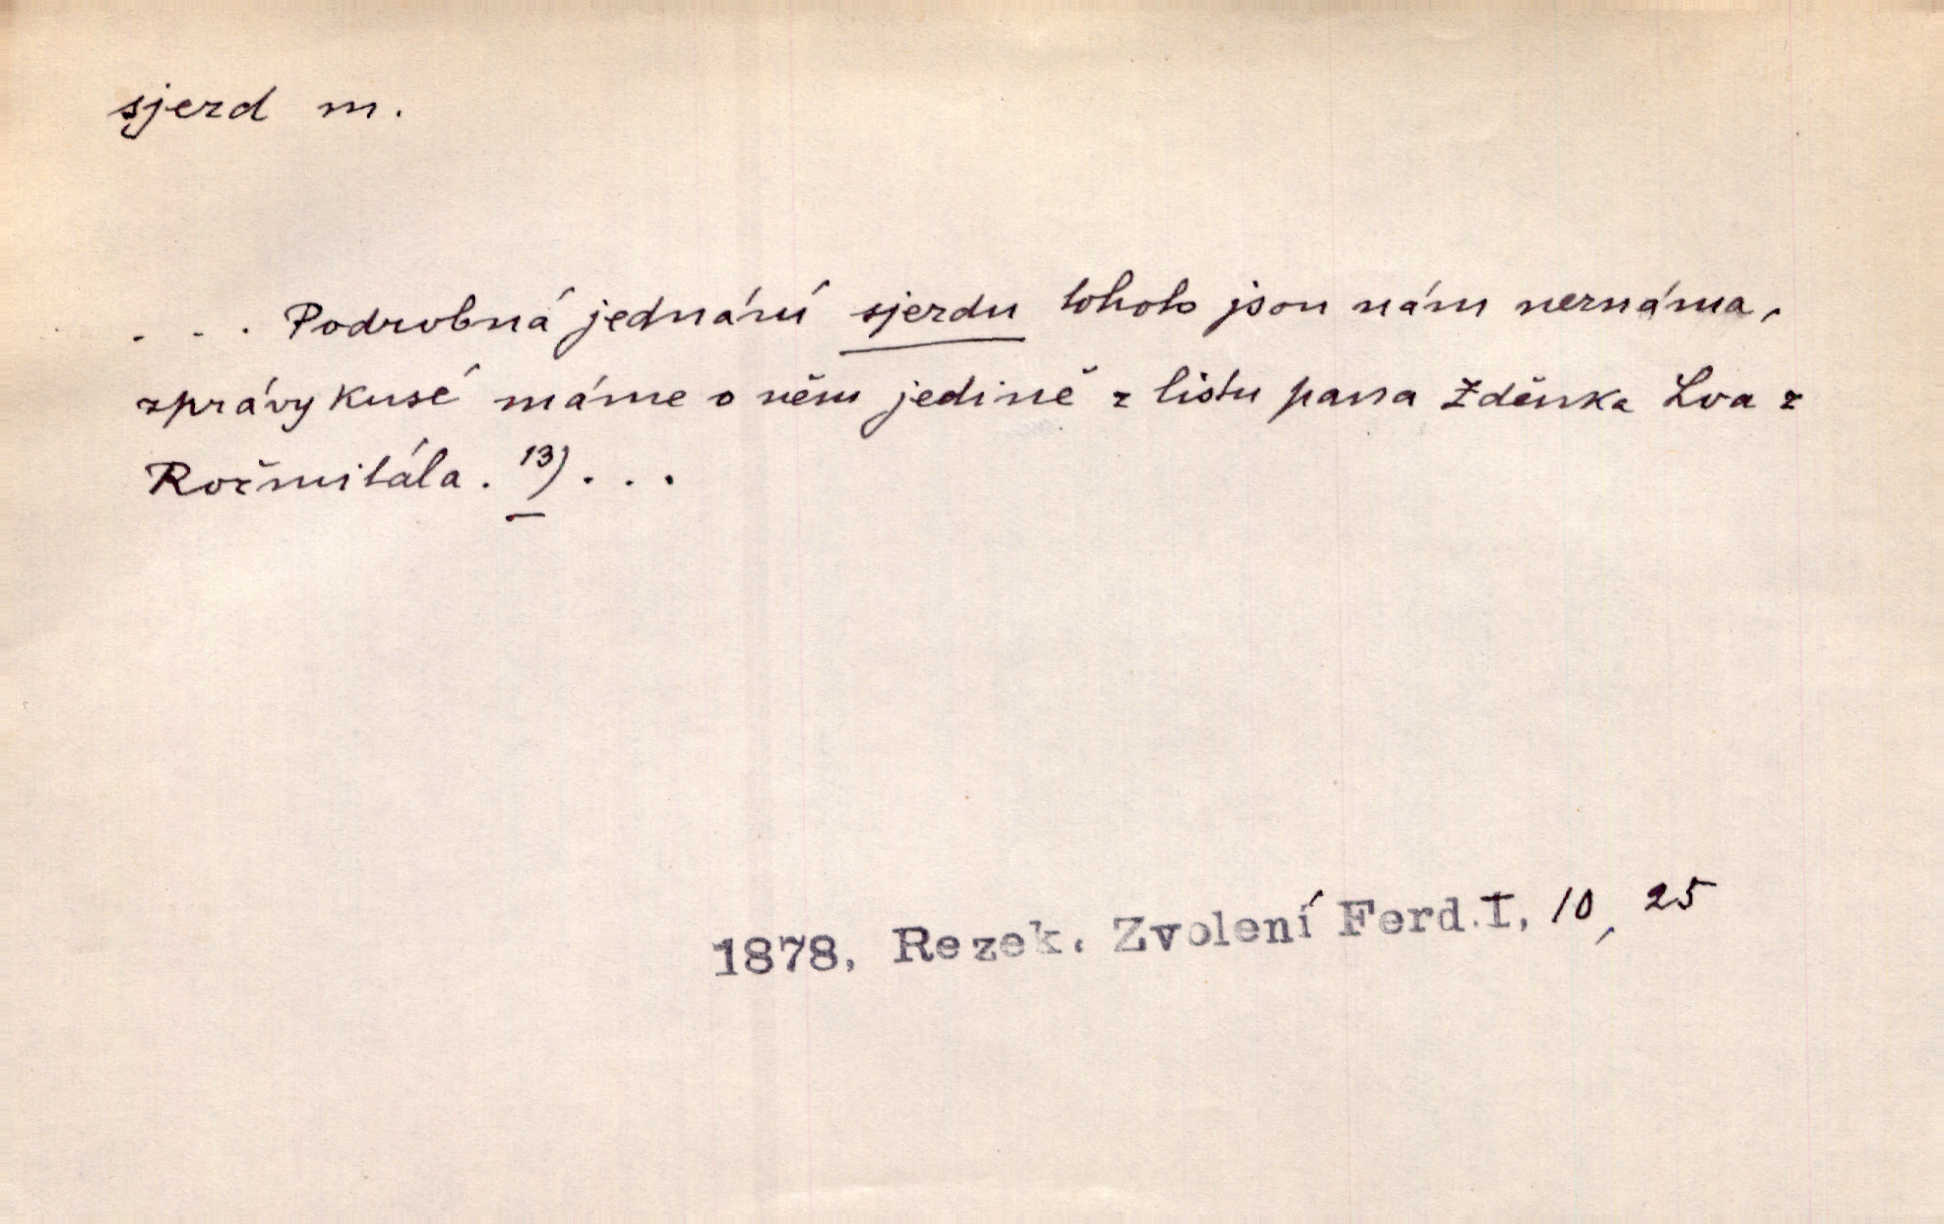 sjezd m.
. . . Podrobná jednání sjezdu tohoto jsou nám neznáma,
zprávy kusé máme o něm jedině z listu pana Zdeňka Lva z
Rožmitála. 13) . . .
1878, Rezek. Zvolení Ferd.I, 10, 25